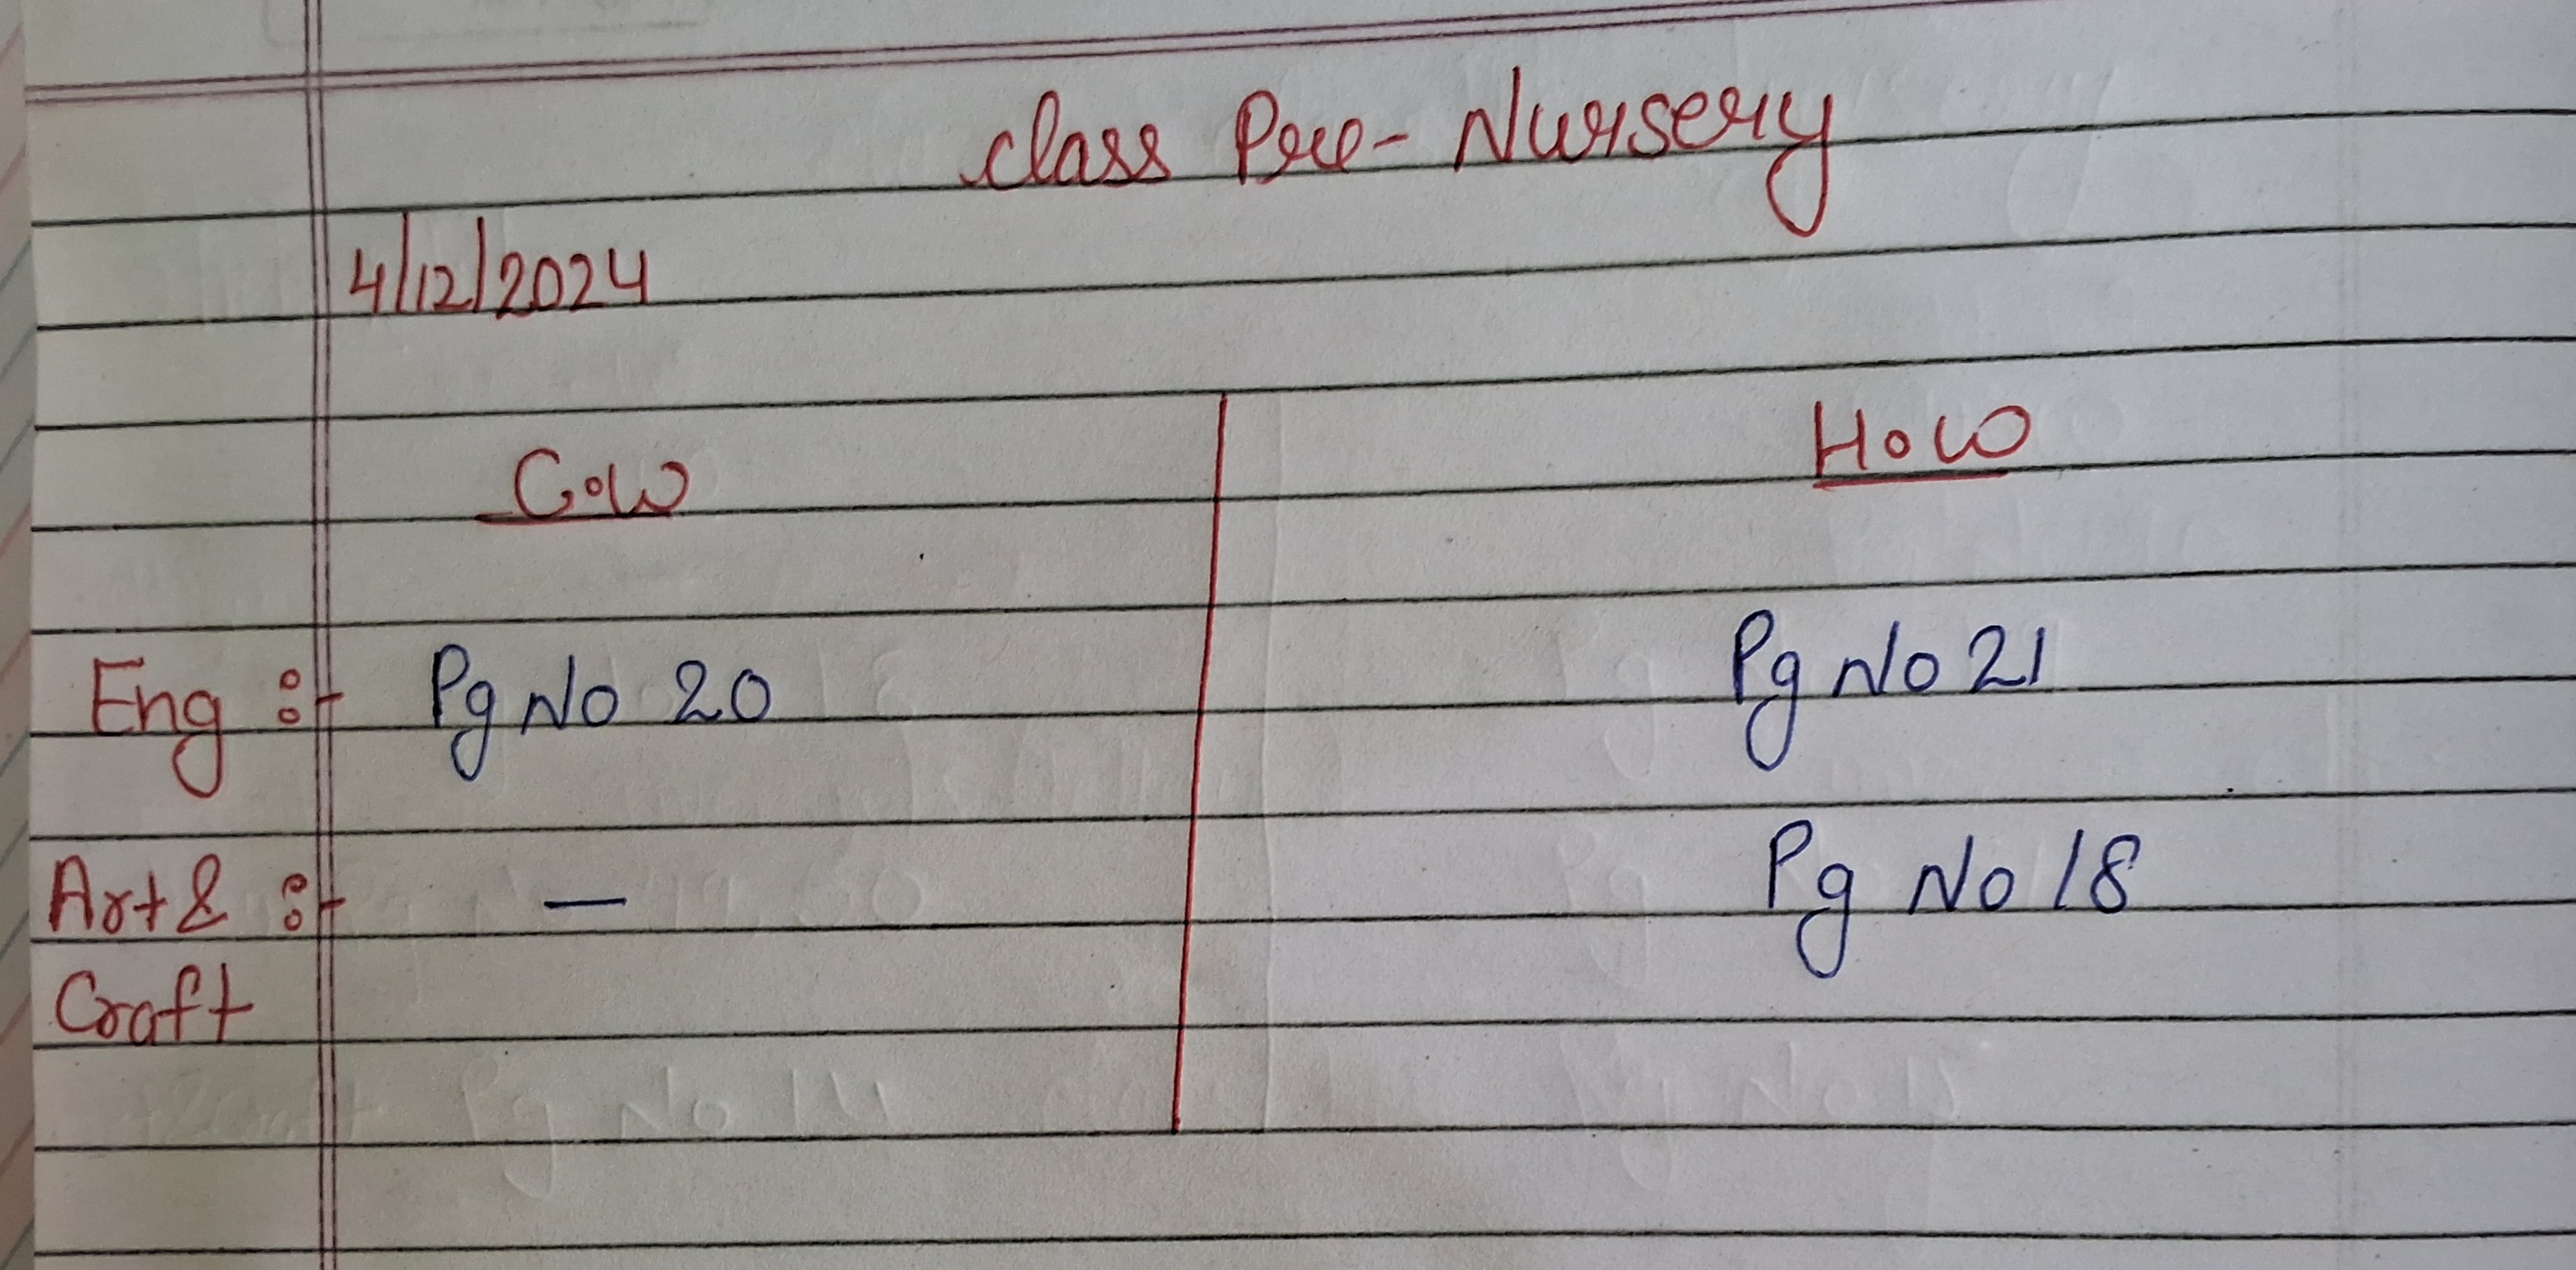 class Pre-Nursery
4/12/2024
C.W H.W
Eng :- Pg No 20 Pg No 21
Art & :- — Pg No 18
Craft